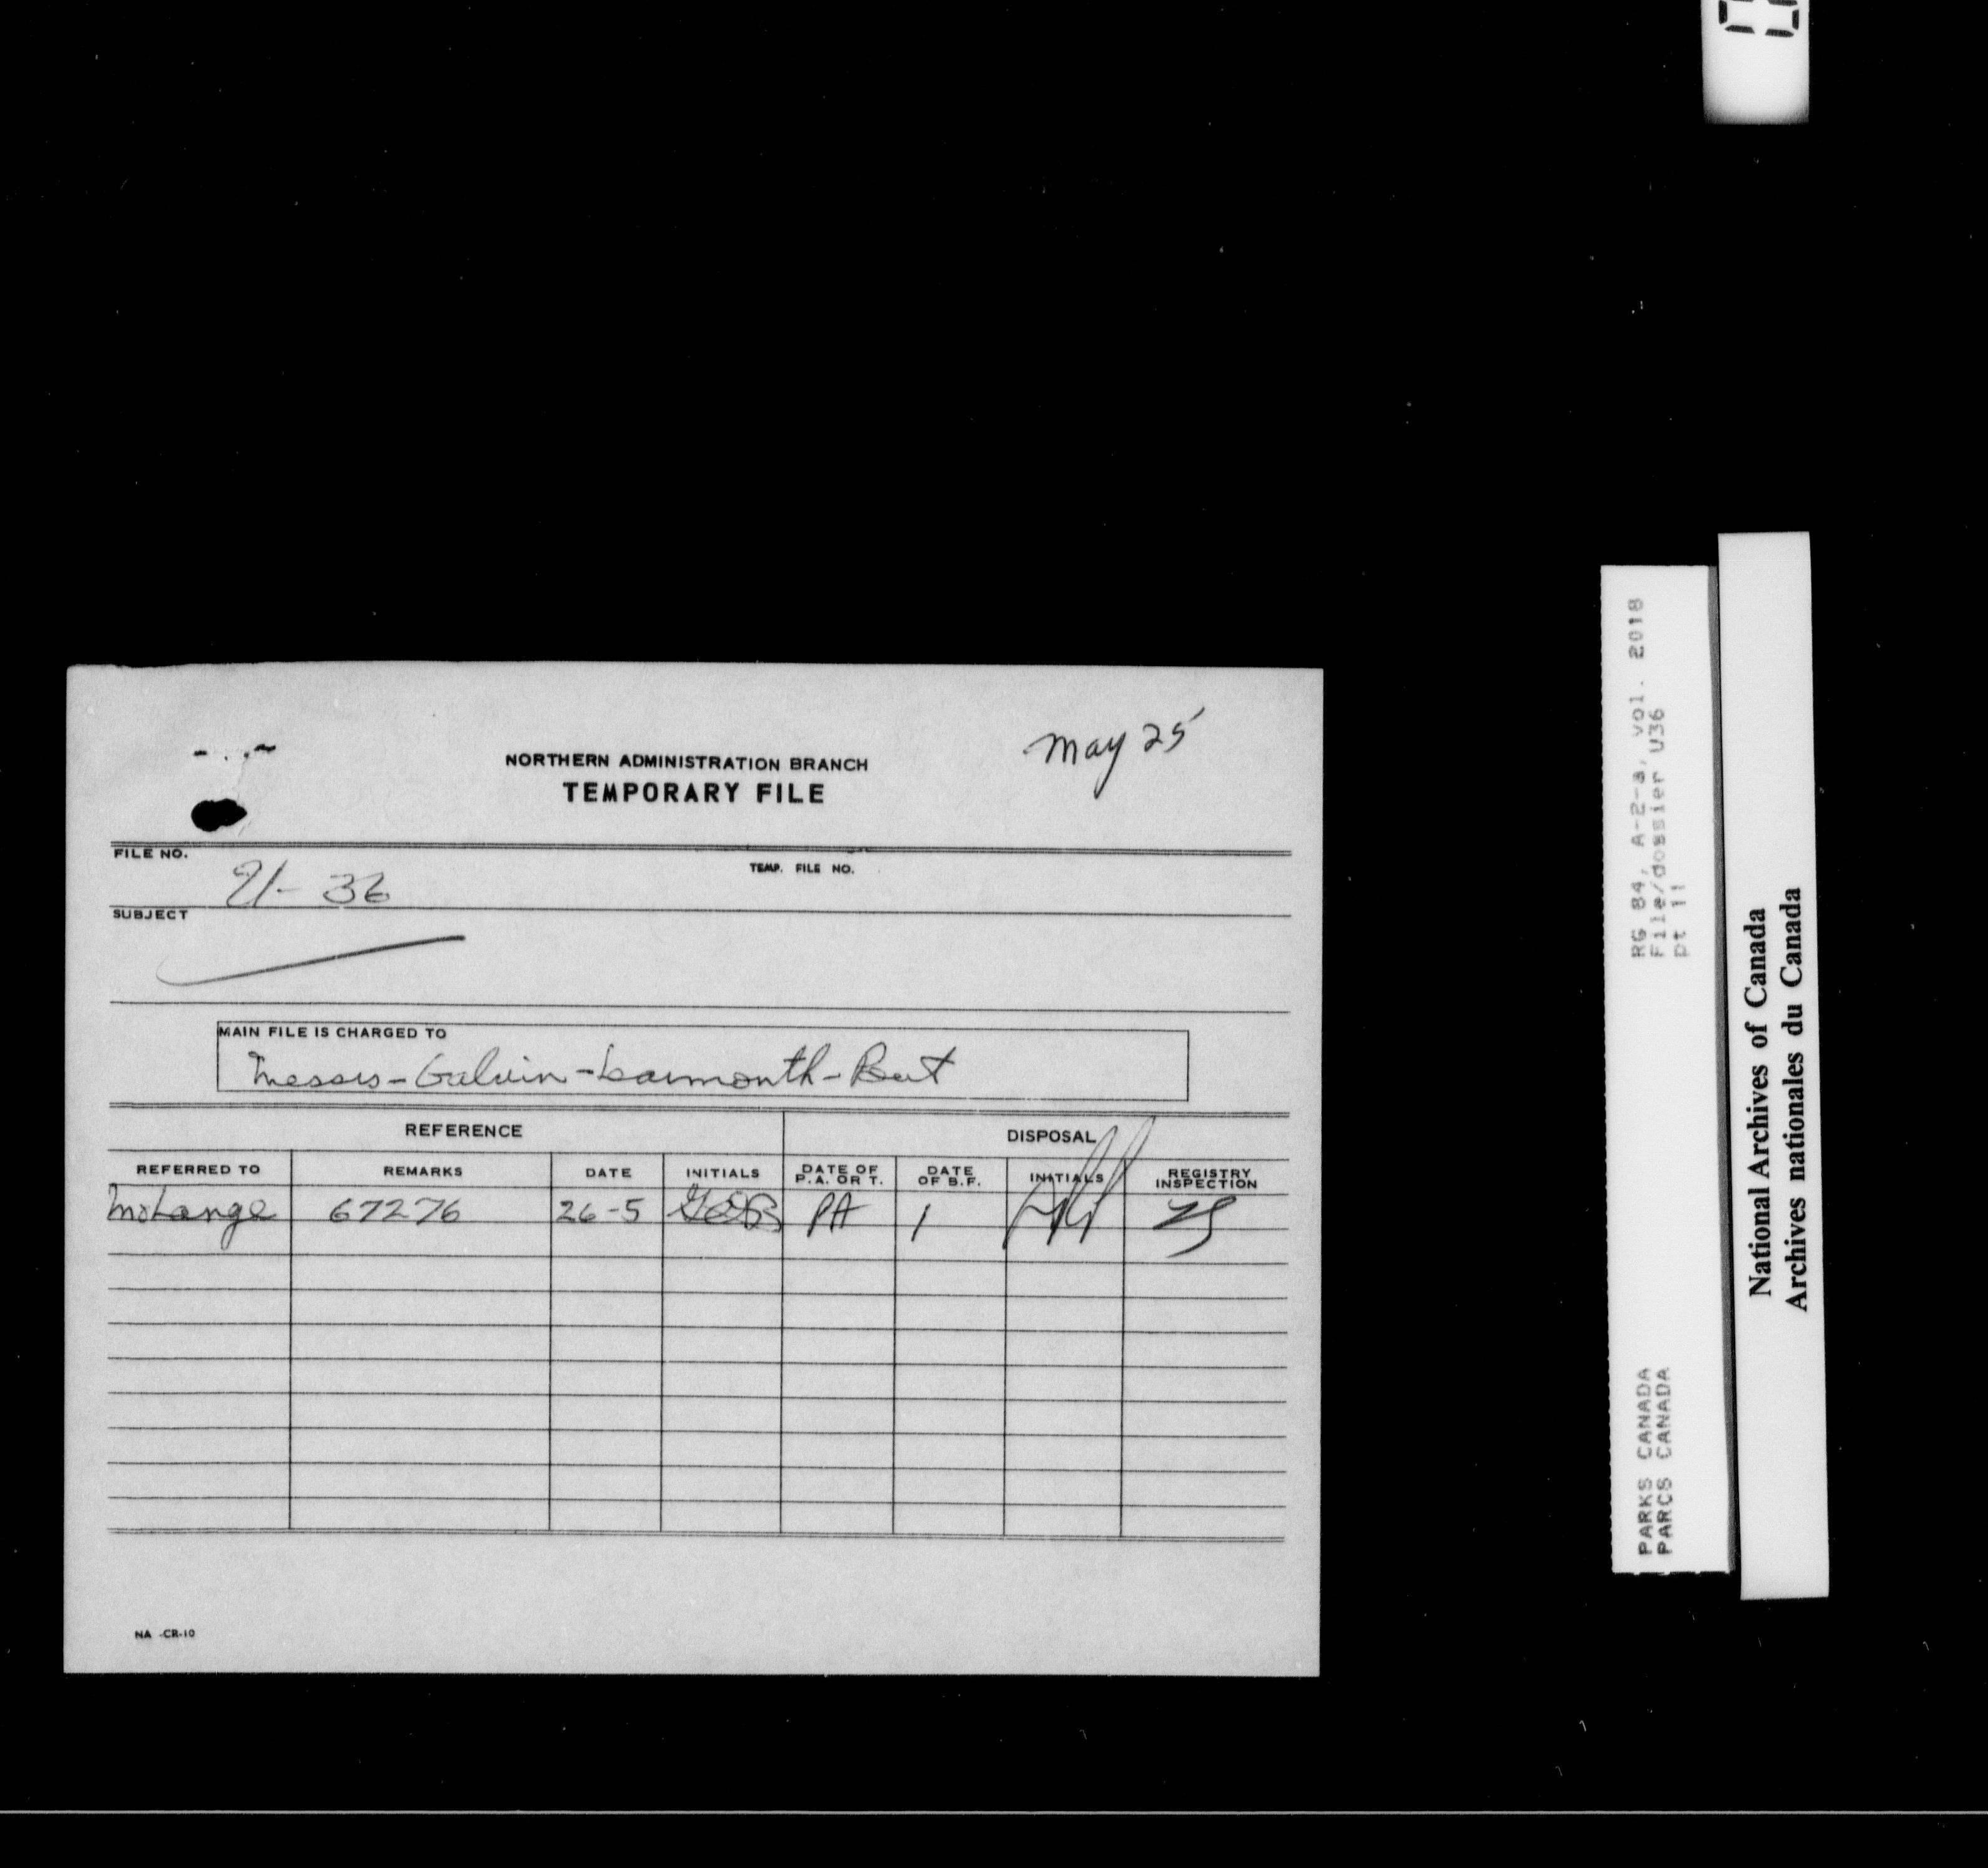 May 25
NORTHERN ADMINISTRATION BRANCH
TEMPORARY FILE
FILE NO.
TEMP. FILE NO.
36
SUBJECT
MAIN FILE IS CHARGED TO
Messrs - Galvin - Larmonth -
REFERENCE
DISPOSAL
REFERRED TO
REMARKS
DATE
INITIALS
DATE OF
P.A. OR T.
DATE
OF B.F.
INITIALS
REGISTRY
INSPECTION
67276
26-5
PA
1
NA -CR-10
RG 84, A-2-a, vol. 2018
File/dossier U36
pt 11
PARKS CANADA
PARCS CANADA
National Archives of Canada
Archives nationales du Canada